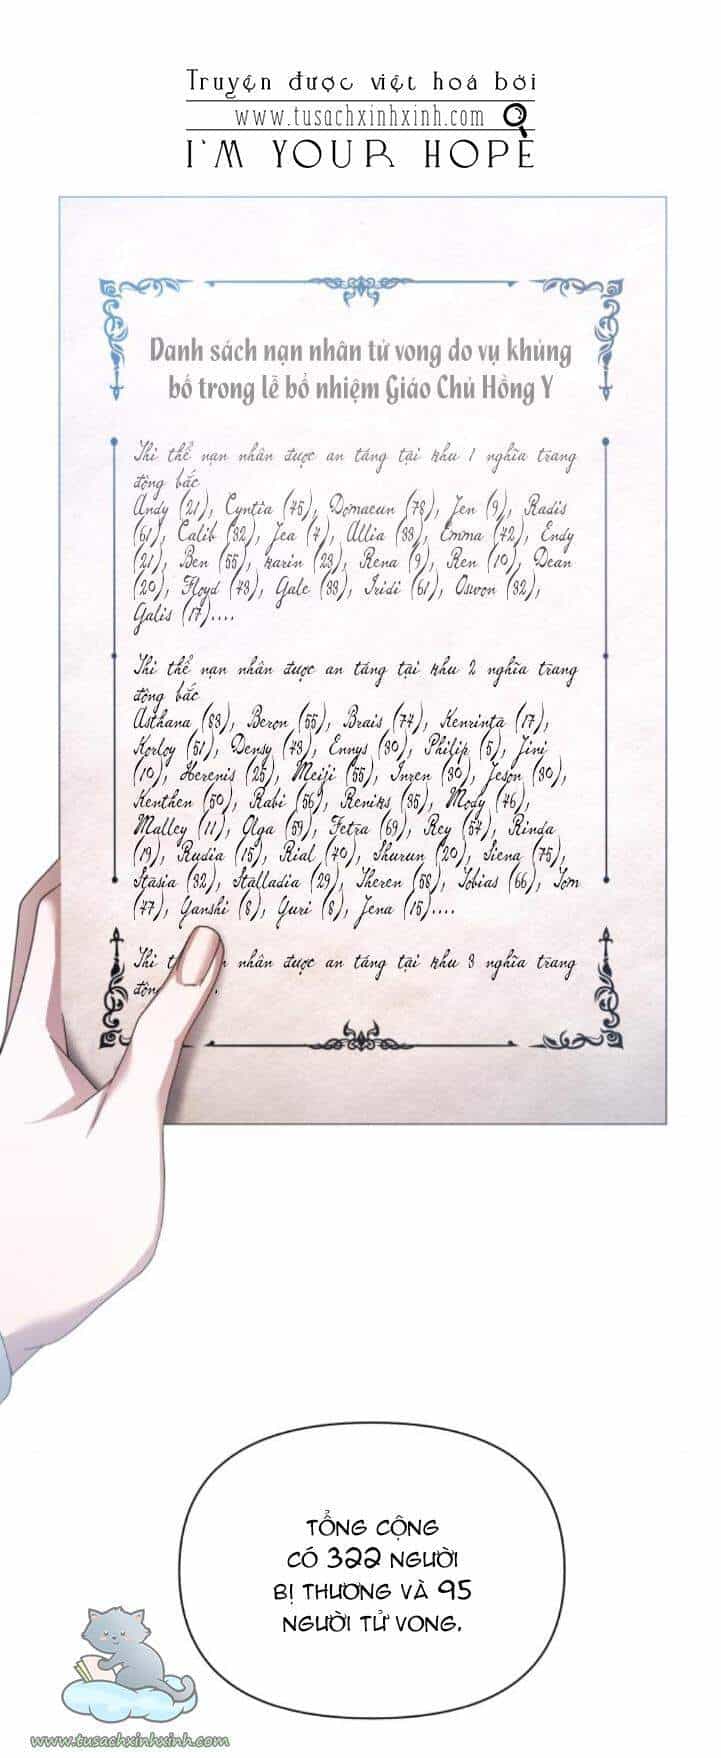 Truyện được việt hoá bởi
www.tusachxinhxinh.com
I'M YOUR HOPE
Danh sách nạn nhân tử vong do vụ khủng
bố trong lễ bổ nhiệm Giáo Chủ Hồng Y
Thi thể nạn nhân được an táng tại khu 1 nghĩa trang
động bắc
Andy (21), Cyntia (45), Domaeun (78), Jen (9), Radis
(61), Calib (32), Jea (4), Allia (33), Emma (42), Endy
(21), Ben (55), Karin (23), Rena (9), Ren (10), Dean
(20), Floyd (43), Gale (38), Iridi (61), Oswon (32),
Galis (17)....
Thi thể nạn nhân được an táng tại khu 2 nghĩa trang
động bắc
Asthana (83), Beron (55), Brais (74), Kenrinta (17),
Korloy (51), Densy (43), Ennys (30), Philip (5), Jini
(10), Herenis (25), Meiji (55), Inren (30), Jeson (30),
Kenthen (50), Rabi (56), Reniks (35), Mody (46),
Malley (11), Olga (59), Fetra (69), Rey (54), Rinda
(19), Rudia (15), Rial (40), Shurun (20), Siena (75),
Stasia (32), Stalladia (29), Theren (58), Tobias (66), Tom
(47), Ganshi (8), Yuri (8), Jena (15)....
Thi nhân được an táng tại khu 3 nghĩa trang
TỔNG CỘNG
CÓ 322 NGƯỜI
BỊ THƯƠNG VÀ 95
NGƯỜI TỬ VONG.
www.tusachxinhxinh.com